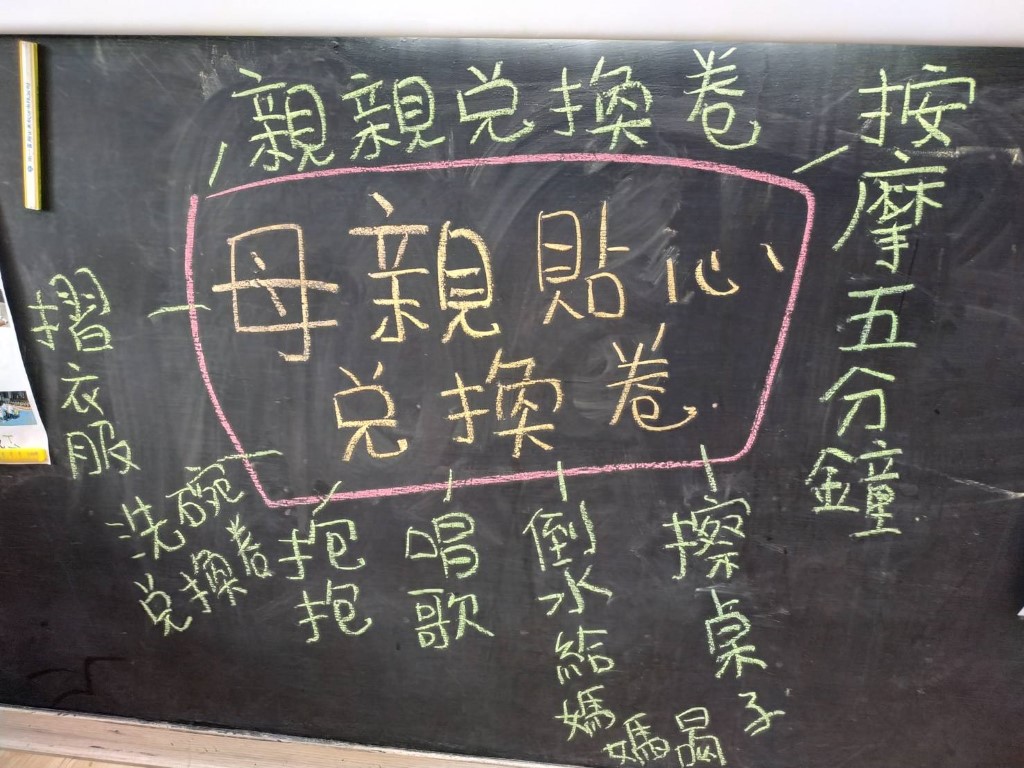 親親兌換卷
按摩五分鐘
母親貼心
兌換卷
摺衣服
洗碗
兌換卷
抱抱
唱歌
倒水給媽媽曷
擦桌子